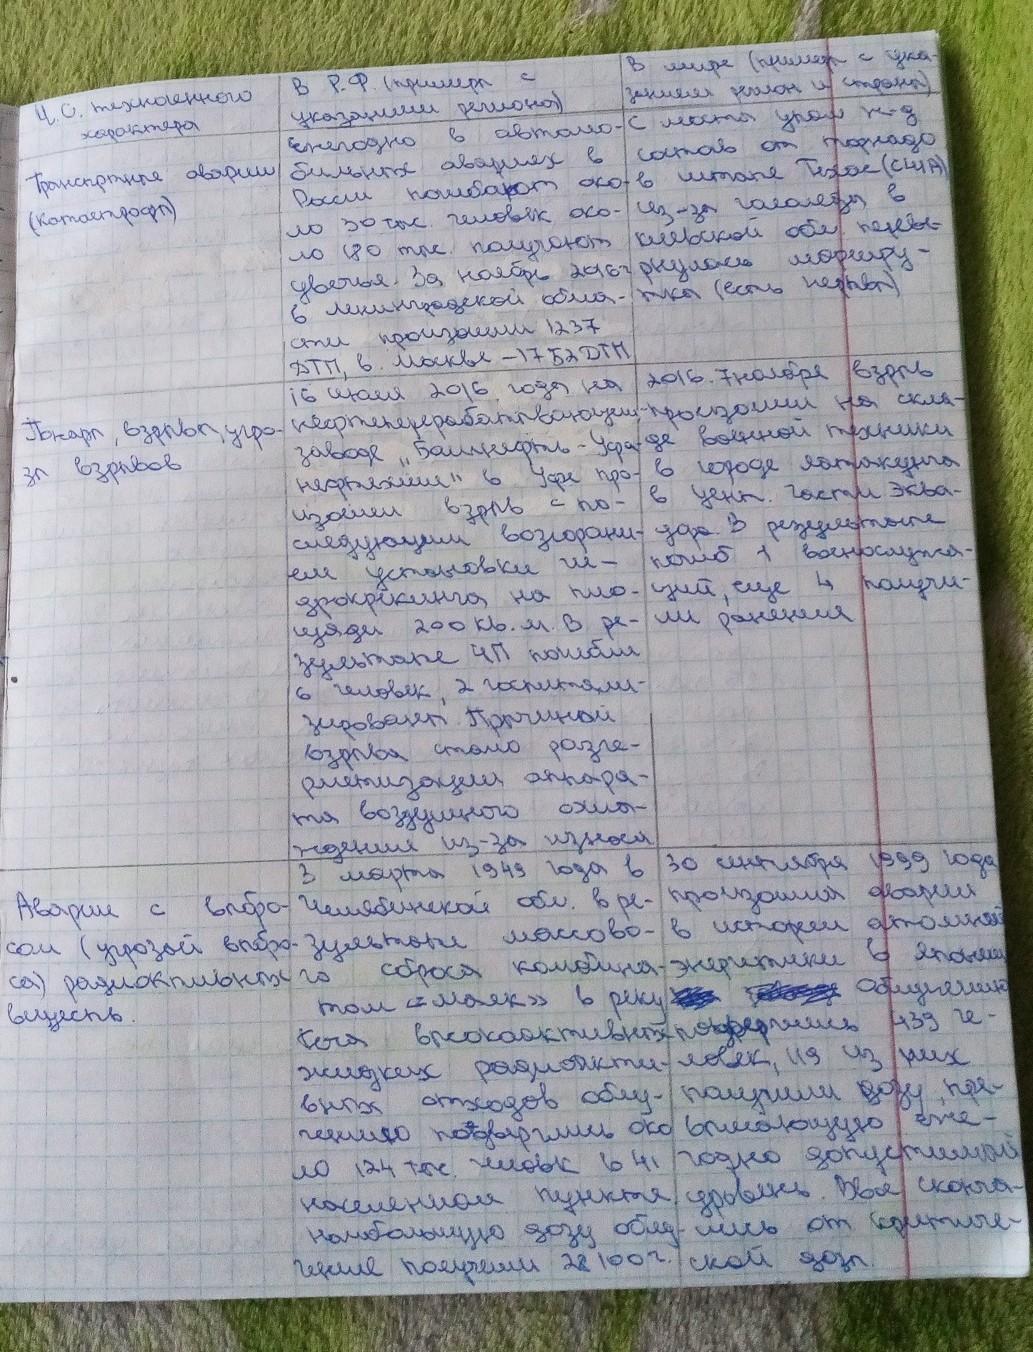 Ч.С. техногенного
характера
В Р.Ф. (пример с
указанием региона)
В мире (пример с ука-
занием регион и страны)
Транспортные аварии
(катастрофы)
ежегодно в автомо-
бильных авариях в
России погибают око-
ло 30 тыс. человек око-
ло 180 тыс. получают
увечья. За ноябрь 2016г
в ленинградской обла-
сти произошли 1237
ДТП, в. Москве - 1752 ДТП
С моста упал ж-д
состав от торнадо
в штате Техас (США)
Из-за гололеда в
киевской обл. перев-
рнулась маршру-
тка (есть жертвы)
Пожары, взрывы, угро-
зы взрывов
16 июля 2016 года на
нефтеперерабатывающем
заводе „Башнефть - Уфа
нефтехим" в Уфе про-
изошел взрыв с по-
следующим возгорани-
ем установки ги-
дрокрекинга на пло-
щади 200 кв. м. В ре-
зультате ЧП погибли
6 человек, 2 госпитали-
зированы. Причиной
взрыва стало разге-
рметизации аппара-
та воздушного охла-
ждения из-за износа
2016. 7 ноября взрыв
произошел на скла-
де военной техники
в городе латакунга
в цент. части Эква-
дора. В результате
погиб 1 военнослужа-
щий, еще 4 получи-
ли ранения
Аварии с выбро-
сом (угрозой выбро-
са) радиоктивных
веществ.
3 марта 1949 года в
Челябинской обл. в ре-
зультате массово-
го сброса комбина-
том «маяк» в реку
Теча высокоактивных
жидких радиоакти-
вных отходов облу-
чению подверглись око
ло 124 тыс. человек в 41
населенном пункте
наибольшую дозу облу-
чение получили 28 100 г.
30 сентября 1999 года
произошла авария
в истории атомной
энергетики в Японии
облучению
подверглись 439 че-
ловек, 119 из них
получили дозу, пре-
вышающую еже-
годно допустимый
уровень. Двое сконча-
лись от критиче-
ской дозы.